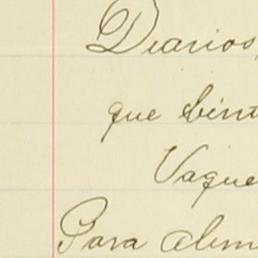 Diarios,
que
Vaque
Para alim